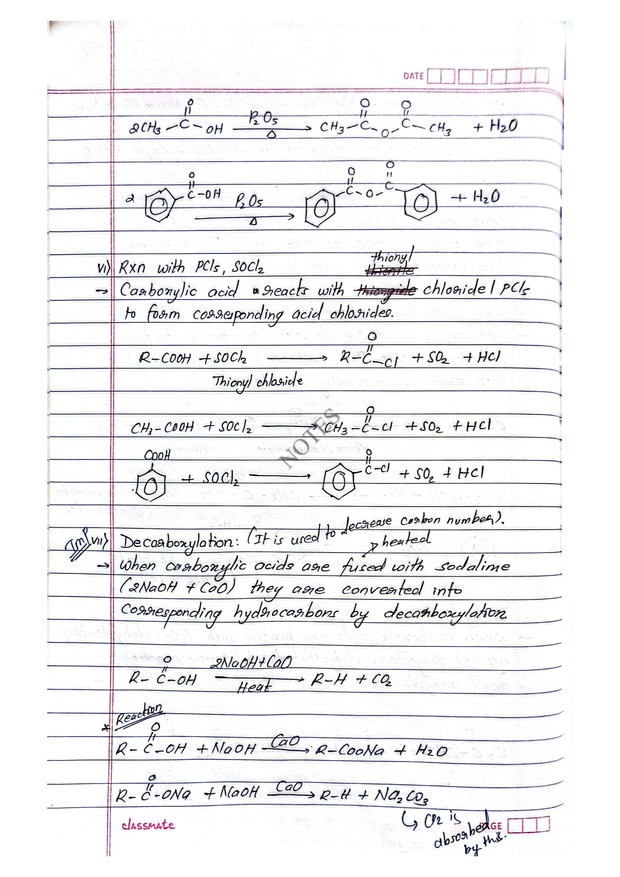 DATE
2CH3-C(=O)-OH P2O5 Δ → CH3-C(=O)-O-C(=O)-CH3 + H2O
2 C(=O)-OH P2O5 Δ → C(=O)-O-C(=O) + H2O
vi) Rxn with PCl5, SOCl2
→ Carboxylic acid reacts with thionyl chloride / PCl5
to form corresponding acid chlorides.
R-COOH + SOCl2 → R-C(=O)-Cl + SO2 + HCl
Thionyl chloride
CH3-COOH + SOCl2 → CH3-C(=O)-Cl + SO2 + HCl
NOTES
COOH + SOCl2 → C(=O)-Cl + SO2 + HCl
Imp vii) Decarboxylation: (It is used to decrease carbon number).
heated
→ When carboxylic acids are fused with sodalime
(2NaOH + CaO) they are converted into
corresponding hydrocarbons by decarboxylation
R-C(=O)-OH 2NaOH+CaO Heat → R-H + CO2
* Reaction
R-C(=O)-OH + NaOH CaO → R-CooNa + H2O
R-C(=O)-ONa + NaOH CaO → R-H + Na2CO3
↳ CO2 is
absorbed
by this.
classmate
PAGE